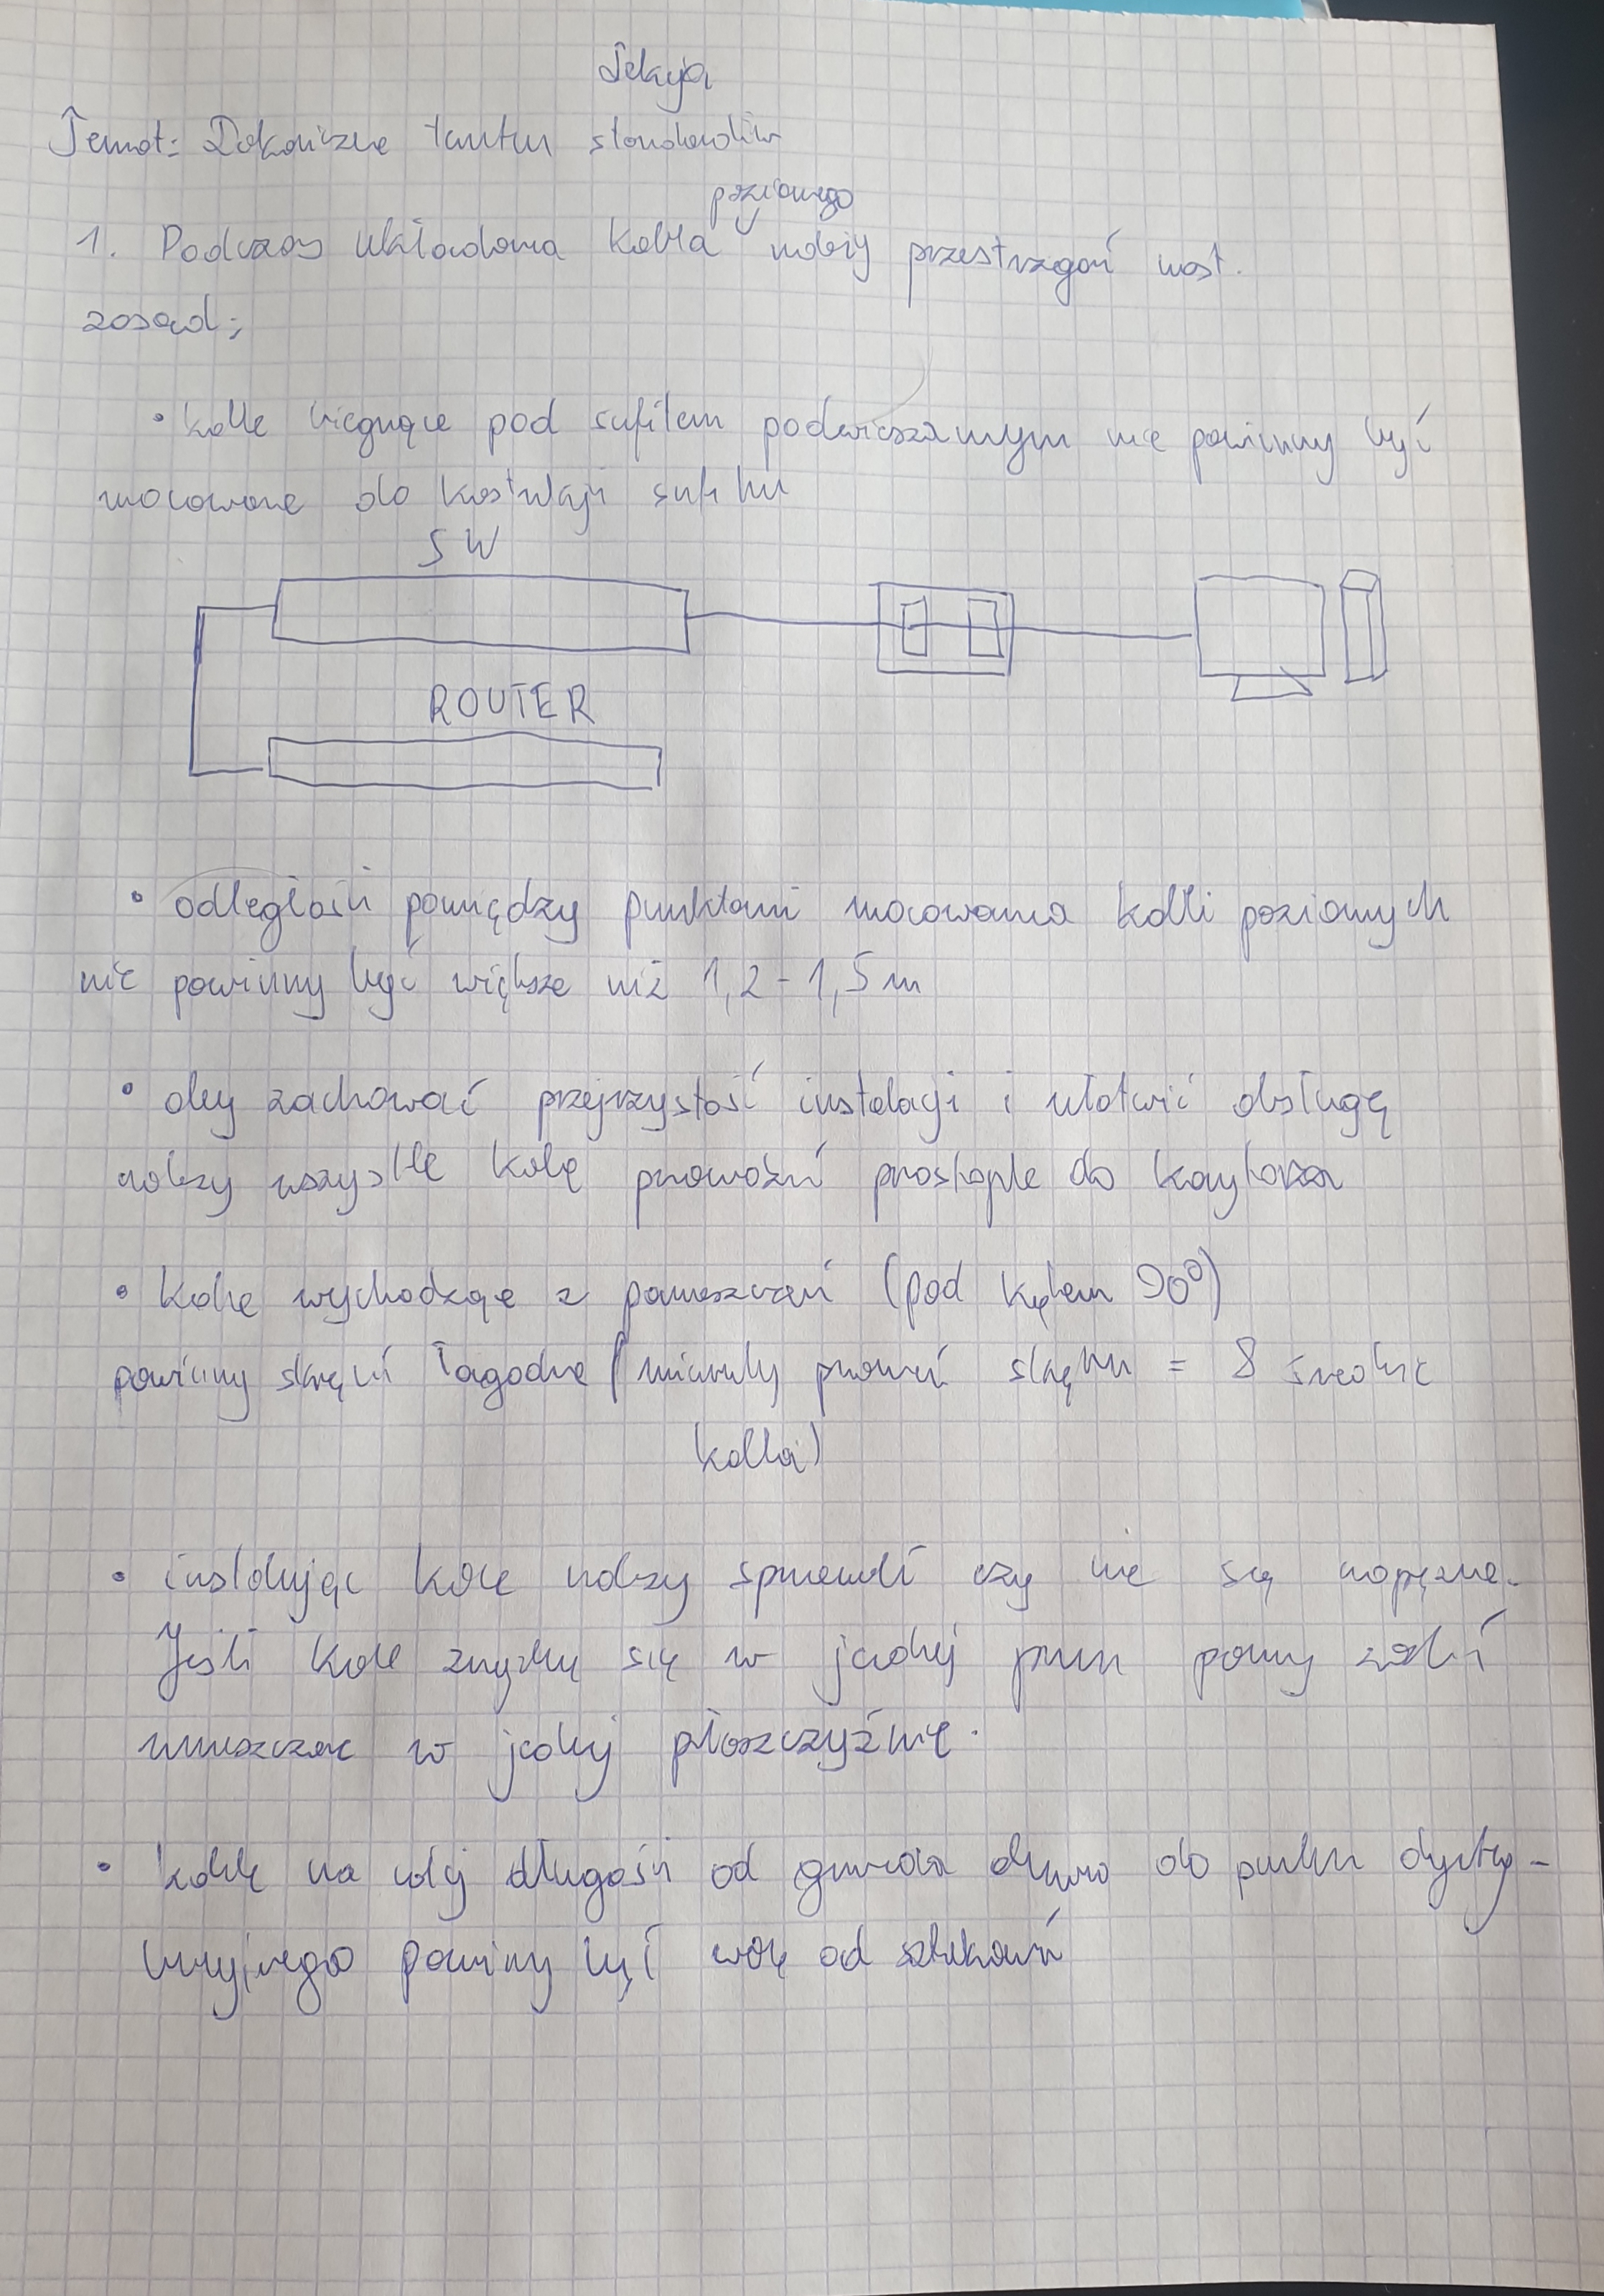 Lekcja
Temat: Dokończenie tematu standardów
poziomego
1. Podczas układania kabla należy przestrzegać nast.
zasad:
• kable biegnące pod sufitem podwieszanym nie powinny być
mocowane do kostrukcji sufitu
SW
ROUTER
• odległości pomiędzy punktami mocowania kabli poziomych
nie powinny być większe niż 1,2-1,5m
• aby zachować przejrzystość instalacji i ułatwić obsługę
należy wszystkie kable prowadzić prostopadle do korytarza
• Kable wychodzące z pomieszczeń (pod kątem 90°)
powinny skręcać łagodnie (minimalny promień skrętu = 8 średnic
kabla)
• instalując kable należy sprawdzić czy nie są napięte.
Jeśli kable znajdują się w jednej
w jednej płaszczyźnie.
• kable na całej długości od gniazda do punktu dystry-
bucyjnego powinny być wolne od sztukowań